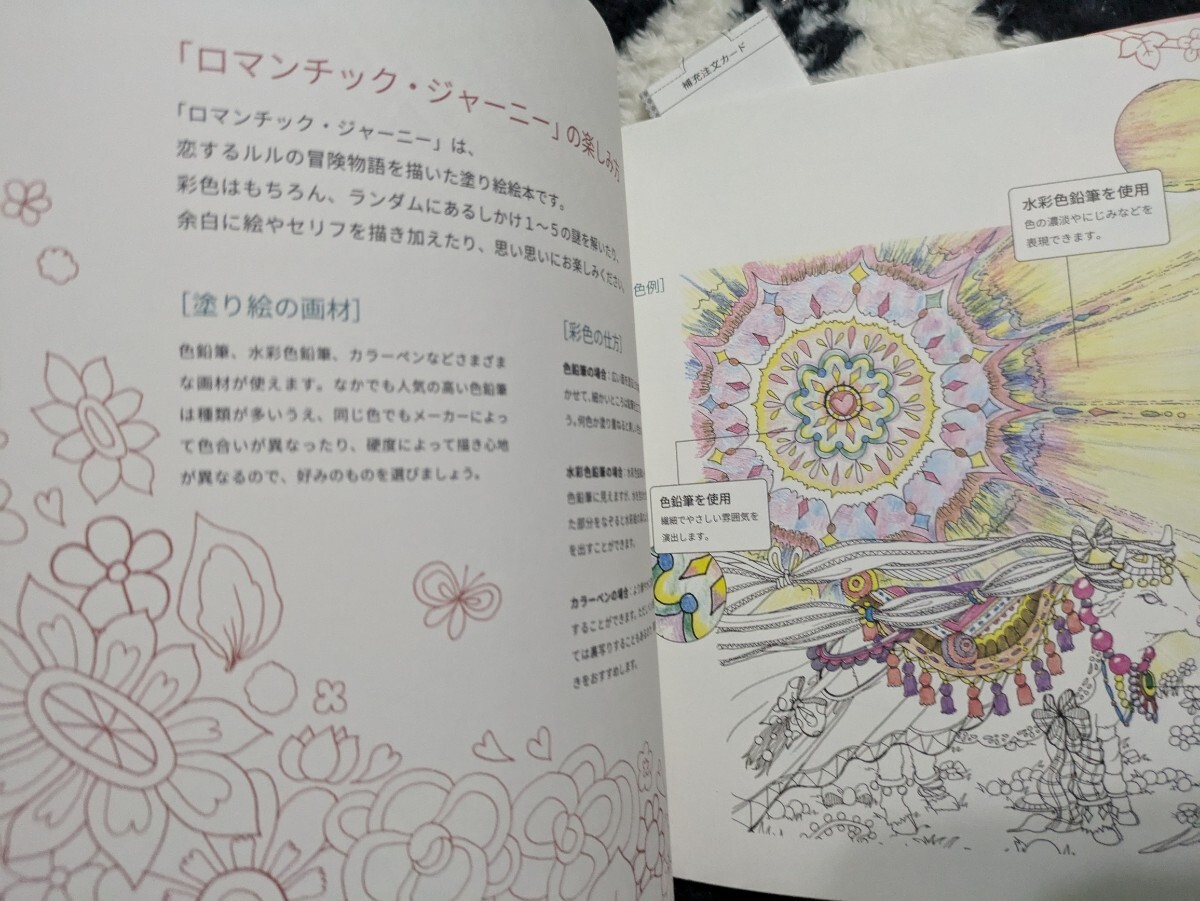 「ロマンチック・ジャーニー」の楽しみ方
「ロマンチック・ジャーニー」は、
恋するルルの冒険物語を描いた塗り絵絵本です。
彩色はもちろん、ランダムにあるしかけ1〜5の謎を解いたり、
余白に絵やセリフを描き加えたり、思い思いにお楽しみください。
[塗り絵の画材]
色鉛筆、水彩色鉛筆、カラーペンなどさまざま
な画材が使えます。なかでも人気の高い色鉛筆
は種類が多いうえ、同じ色でもメーカーによっ
て色合いが異なったり、硬度によって描き心地
が異なるので、好みのものを選びましょう。
[彩色の仕方]
色鉛筆の場合：広い
かせて、細かいところは
う。何色か塗り重ねると
水彩色鉛筆の場合：
色鉛筆に見えますが、
た部分をなぞると
を出すことができます。
カラーペンの場合：より
することができます。
ては裏写りすることも
きをおすすめします。
補充注文カード
色例]
水彩色鉛筆を使用
色の濃淡やにじみなどを
表現できます。
色鉛筆を使用
繊細でやさしい雰囲気を
演出します。